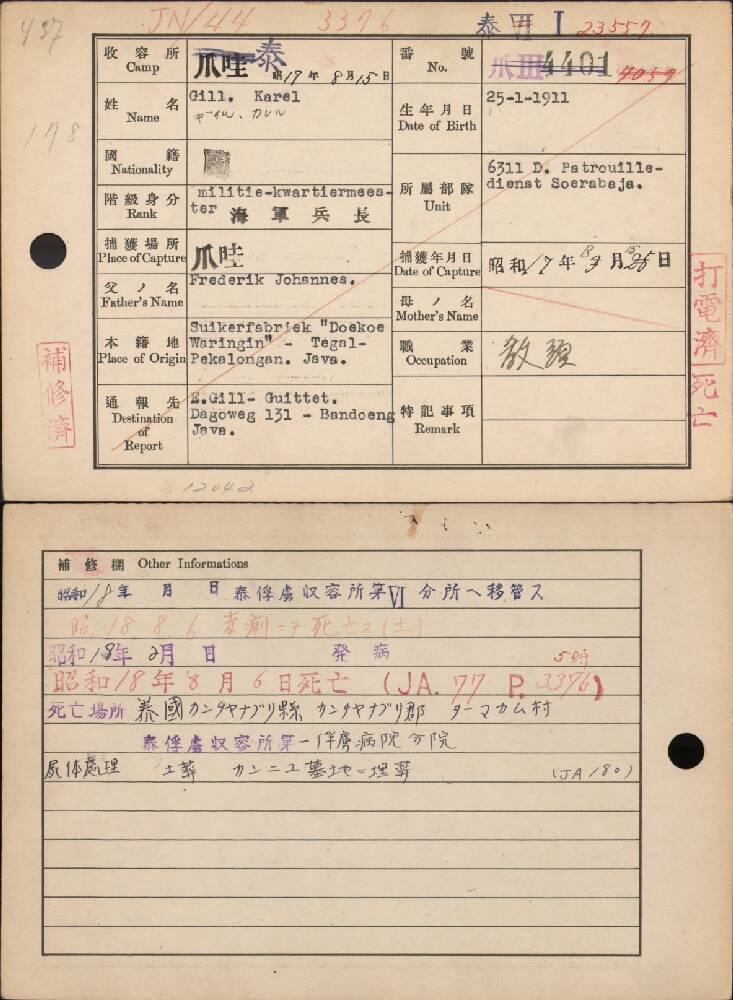 437
JN/44
3376
泰 Ⅵ I
23557
178
收容所
Camp
爪哇 泰
昭17年8月15日
番號
No.
爪Ⅲ 4401 4059
姓名
Name
Gill. Karel
生年月日
Date of Birth
25-1-1911
國籍
Nationality
階級身分
Rank
militie-kwartiermees-
ter 海軍兵長
所屬部隊
Unit
6311 D. Patrouille-
dienst Soerabaja.
捕獲場所
Place of Capture
爪哇
捕獲年月日
Date of Capture
昭和17年 月 日
父ノ名
Father's Name
Frederik Johannes.
母ノ名
Mother's Name
本籍地
Place of Origin
Suikerfabriek "Doekoe
Waringin" - Tegal-
Pekalongan. Java.
職業
Occupation
通報先
Destination
of
Report
E.Gill- Guittet.
Dagoweg 131 - Bandoeng
Java.
特記事項
Remark
補修濟
打電濟
死亡
12042
補修欄 Other Informations
昭和18年 月 日 泰俘虜収容所第Ⅵ分所ヘ移管ス
昭18.8.6 赤痢ニテ死亡ス(土)
昭和18年2月 日 発病
昭和18年8月6日死亡 (JA.77 P.3376)
死亡場所 泰國カンチャナブリ縣 カンチャナブリ郡 ターマカム村
泰俘虜収容所第一俘虜病院分院
屍体處理 土葬 カンニユ墓地ニ埋葬 (JA180)